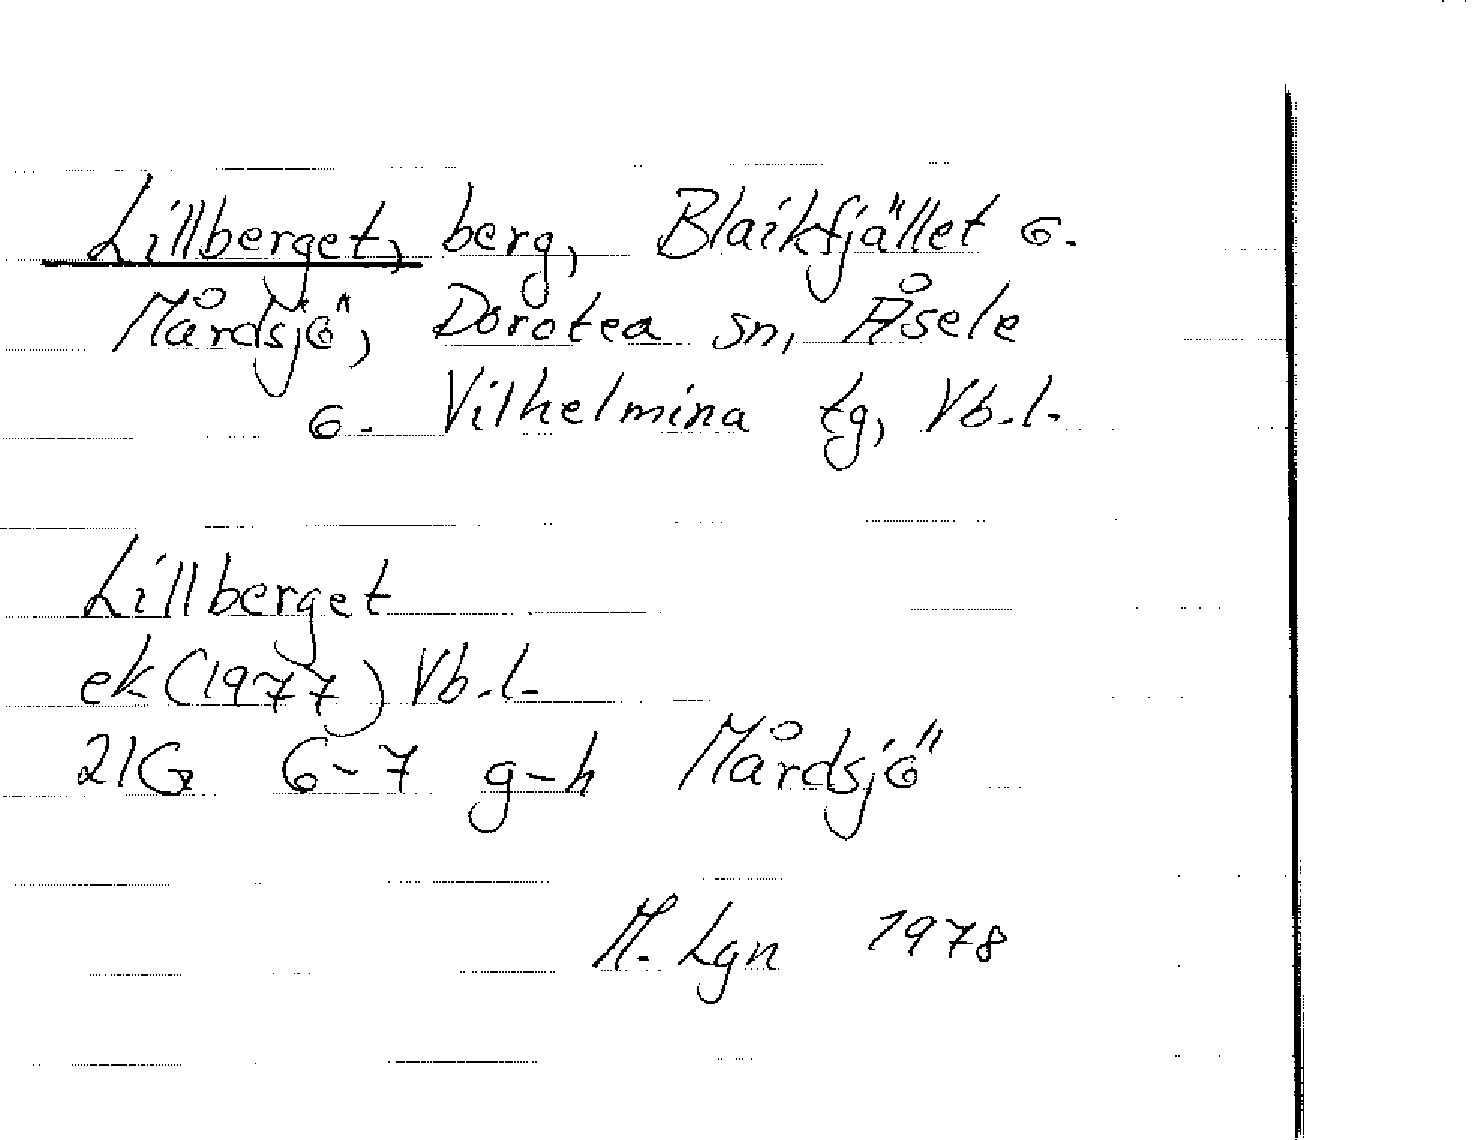 Lillberget, berg, Blaikfjället o.
Mårdsjö, Dorotea sn, Åsele
o. Vilhelmina tg, Vb.l.
Lillberget
ek (1977) Vb.l.
21G 6-7 g-h Mårdsjö
M. Lgn 1978